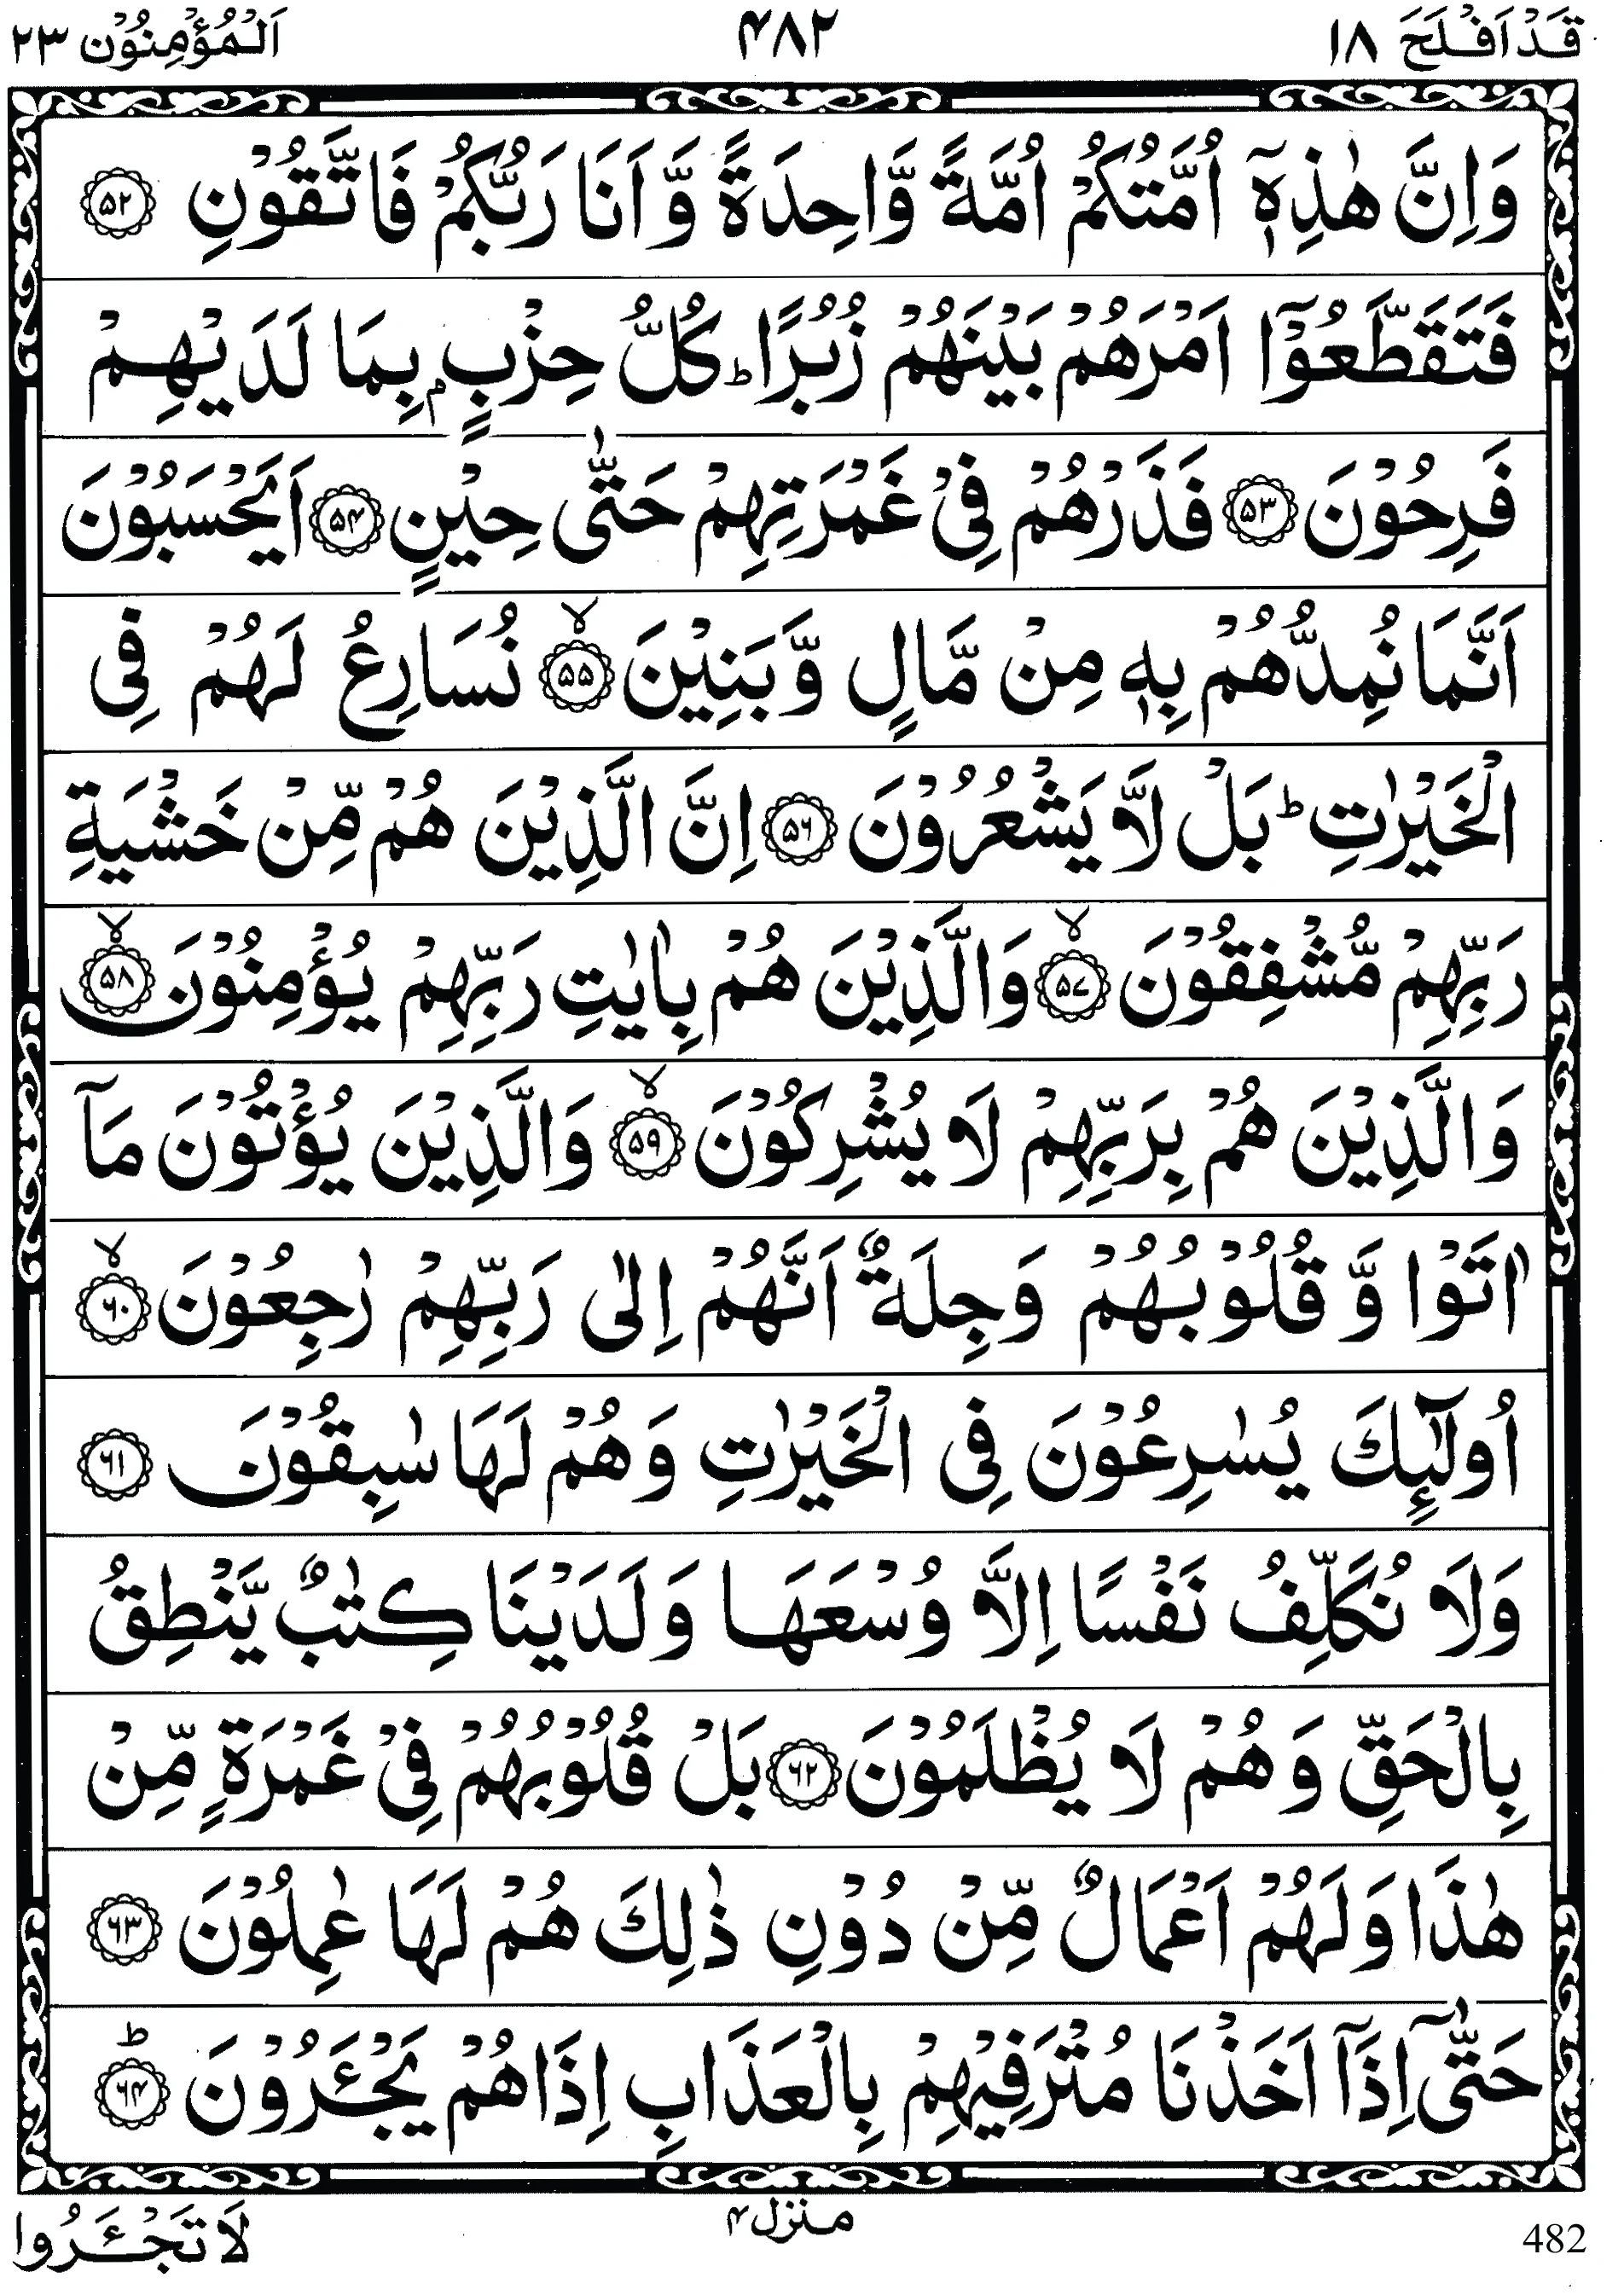 قَدْ اَفْلَحَ ١٨ ۴٨٢ اَلْمُؤْمِنُوْن ٢٣
وَاِنَّ هٰذِهٖۤ اُمَّتُكُمْ اُمَّةً وَّاحِدَةً وَّاَنَا رَبُّكُمْ فَاتَّقُوْنِ ۵٢
فَتَقَطَّعُوْۤا اَمْرَهُمْ بَيْنَهُمْ زُبُرًا ؕ كُلُّ حِزْبٍۭ بِمَا لَدَيْهِمْ
فَرِحُوْنَ ۵٣ فَذَرْهُمْ فِيْ غَمْرَتِهِمْ حَتّٰى حِيْنٍ ۵۴ اَيَحْسَبُوْنَ
اَنَّمَا نُمِدُّهُمْ بِهٖ مِنْ مَّالٍ وَّبَنِيْنَ ۵۵ ۙ نُسَارِعُ لَهُمْ فِى
الْخَيْرٰتِ ؕ بَلْ لَّا يَشْعُرُوْنَ ۵۶ اِنَّ الَّذِيْنَ هُمْ مِّنْ خَشْيَةِ
رَبِّهِمْ مُّشْفِقُوْنَ ۵۷ ۙ وَالَّذِيْنَ هُمْ بِاٰيٰتِ رَبِّهِمْ يُؤْمِنُوْنَ ۵۸ ۙ
وَالَّذِيْنَ هُمْ بِرَبِّهِمْ لَا يُشْرِكُوْنَ ۵۹ ۙ وَالَّذِيْنَ يُؤْتُوْنَ مَاۤ
اٰتَوْا وَّقُلُوْبُهُمْ وَجِلَةٌ اَنَّهُمْ اِلٰى رَبِّهِمْ رٰجِعُوْنَ ۶۰ ۙ
اُولٰٓئِكَ يُسٰرِعُوْنَ فِى الْخَيْرٰتِ وَهُمْ لَهَا سٰبِقُوْنَ ۶۱
وَلَا نُكَلِّفُ نَفْسًا اِلَّا وُسْعَهَا وَلَدَيْنَا كِتٰبٌ يَّنْطِقُ
بِالْحَقِّ وَهُمْ لَا يُظْلَمُوْنَ ۶۲ بَلْ قُلُوْبُهُمْ فِيْ غَمْرَةٍ مِّنْ
هٰذَا وَلَهُمْ اَعْمَالٌ مِّنْ دُوْنِ ذٰلِكَ هُمْ لَهَا عٰمِلُوْنَ ۶۳
حَتّٰىۤ اِذَاۤ اَخَذْنَا مُتْرَفِيْهِمْ بِالْعَذَابِ اِذَا هُمْ يَجْـَٔرُوْنَ ۶۴ ؕ
لَا تَجْـَٔرُوا منزل ۴ 482